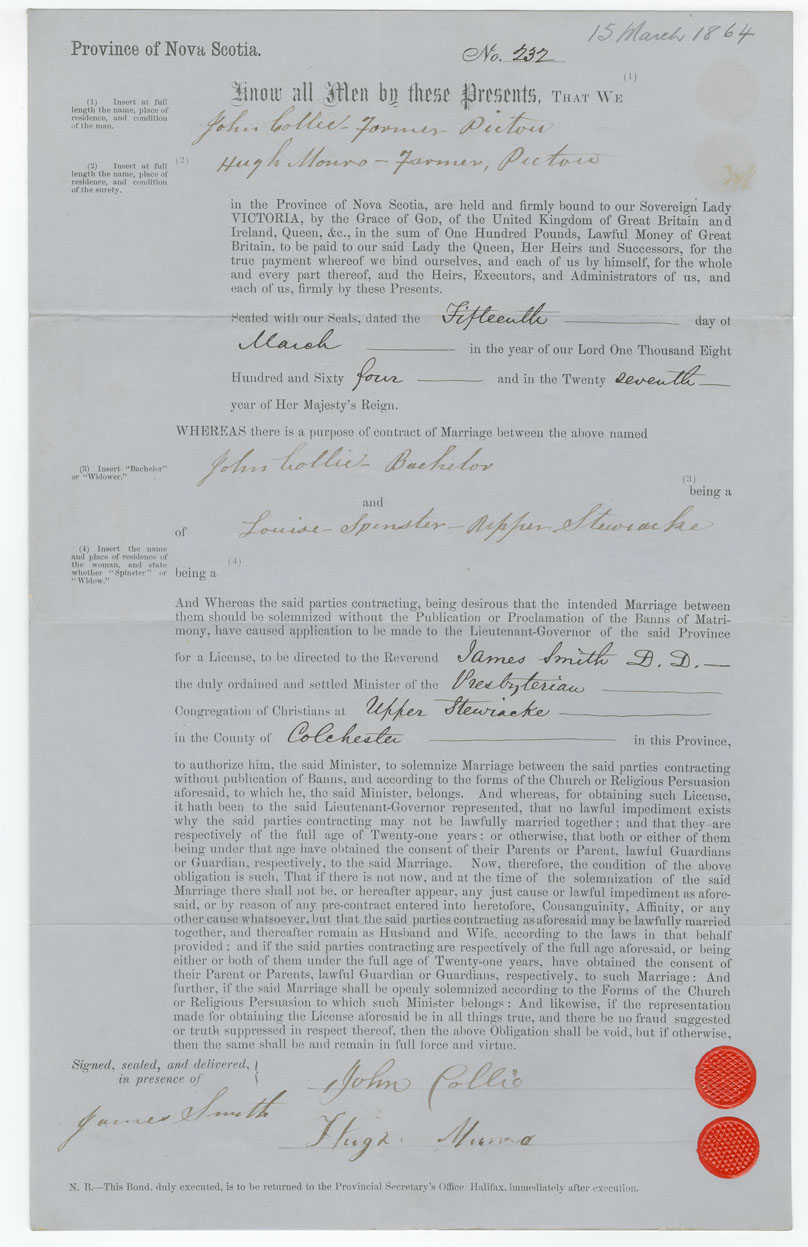 15 March 1864
Province of Nova Scotia.
No. 232
(1)
Know all Men by these Presents, THAT WE
(1) Insert at full
length the name, place of
residence, and condition
of the man.
John Collie - Farmer Pictou
(2) Insert at full
length the name, place of
residence, and condition
of the surety.
(2) Hugh Monro - Farmer, Pictou
in the Province of Nova Scotia, are held and firmly bound to our Sovereign Lady
VICTORIA, by the Grace of GOD, of the United Kingdom of Great Britain and
Ireland, Queen, &c., in the sum of One Hundred Pounds, Lawful Money of Great
Britain, to be paid to our said Lady the Queen, Her Heirs and Successors, for the
true payment whereof we bind ourselves, and each of us by himself, for the whole
and every part thereof, and the Heirs, Executors, and Administrators of us, and
each of us, firmly by these Presents.
Sealed with our Seals, dated the Fifteenth day of
March in the year of our Lord One Thousand Eight
Hundred and Sixty four and in the Twenty seventh
year of Her Majesty's Reign.
WHEREAS there is a purpose of contract of Marriage between the above named
(3) Insert "Bachelor"
or "Widower."
John Collie - Bachelor
(3)
being a
and
of Louise - Spinster - Upper Stewiacke
(4) Insert the name
and place of residence of
the woman, and state
whether "Spinster" or
"Widow."
(4)
being a
And Whereas the said parties contracting, being desirous that the intended Marriage between
them should be solemnized without the Publication or Proclamation of the Banns of Matri-
mony, have caused application to be made to the Lieutenant-Governor of the said Province
for a License, to be directed to the Reverend James Smith D. D.
the duly ordained and settled Minister of the Presbyterian
Congregation of Christians at Upper Stewiacke
in the County of Colchester in this Province,
to authorize him, the said Minister, to solemnize Marriage between the said parties contracting
without publication of Banns, and according to the forms of the Church or Religious Persuasion
aforesaid, to which he, the said Minister, belongs. And whereas, for obtaining such License,
it hath been to the said Lieutenant-Governor represented, that no lawful impediment exists
why the said parties contracting may not be lawfully married together; and that they are
respectively of the full age of Twenty-one years; or otherwise, that both or either of them
being under that age have obtained the consent of their Parents or Parent, lawful Guardians
or Guardian, respectively, to the said Marriage. Now, therefore, the condition of the above
obligation is such, That if there is not now, and at the time of the solemnization of the said
Marriage there shall not be, or hereafter appear, any just cause or lawful impediment as afore-
said, or by reason of any pre-contract entered into heretofore, Consanguinity, Affinity, or any
other cause whatsoever, but that the said parties contracting as aforesaid may be lawfully married
together, and thereafter remain as Husband and Wife, according to the laws in that behalf
provided; and if the said parties contracting are respectively of the full age aforesaid, or being
either or both of them under the full age of Twenty-one years, have obtained the consent of
their Parent or Parents, lawful Guardian or Guardians, respectively, to such Marriage: And
further, if the said Marriage shall be openly solemnized according to the Forms of the Church
or Religious Persuasion to which such Minister belongs: And likewise, if the representation
made for obtaining the License aforesaid be in all things true, and there be no fraud suggested
or truth suppressed in respect thereof, then the above Obligation shall be void, but if otherwise,
then the same shall be and remain in full force and virtue.
Signed, sealed, and delivered,
in presence of
John Collie
James Smith
Hugh Munro
N. B.—This Bond, duly executed, is to be returned to the Provincial Secretary's Office Halifax, immediately after execution.